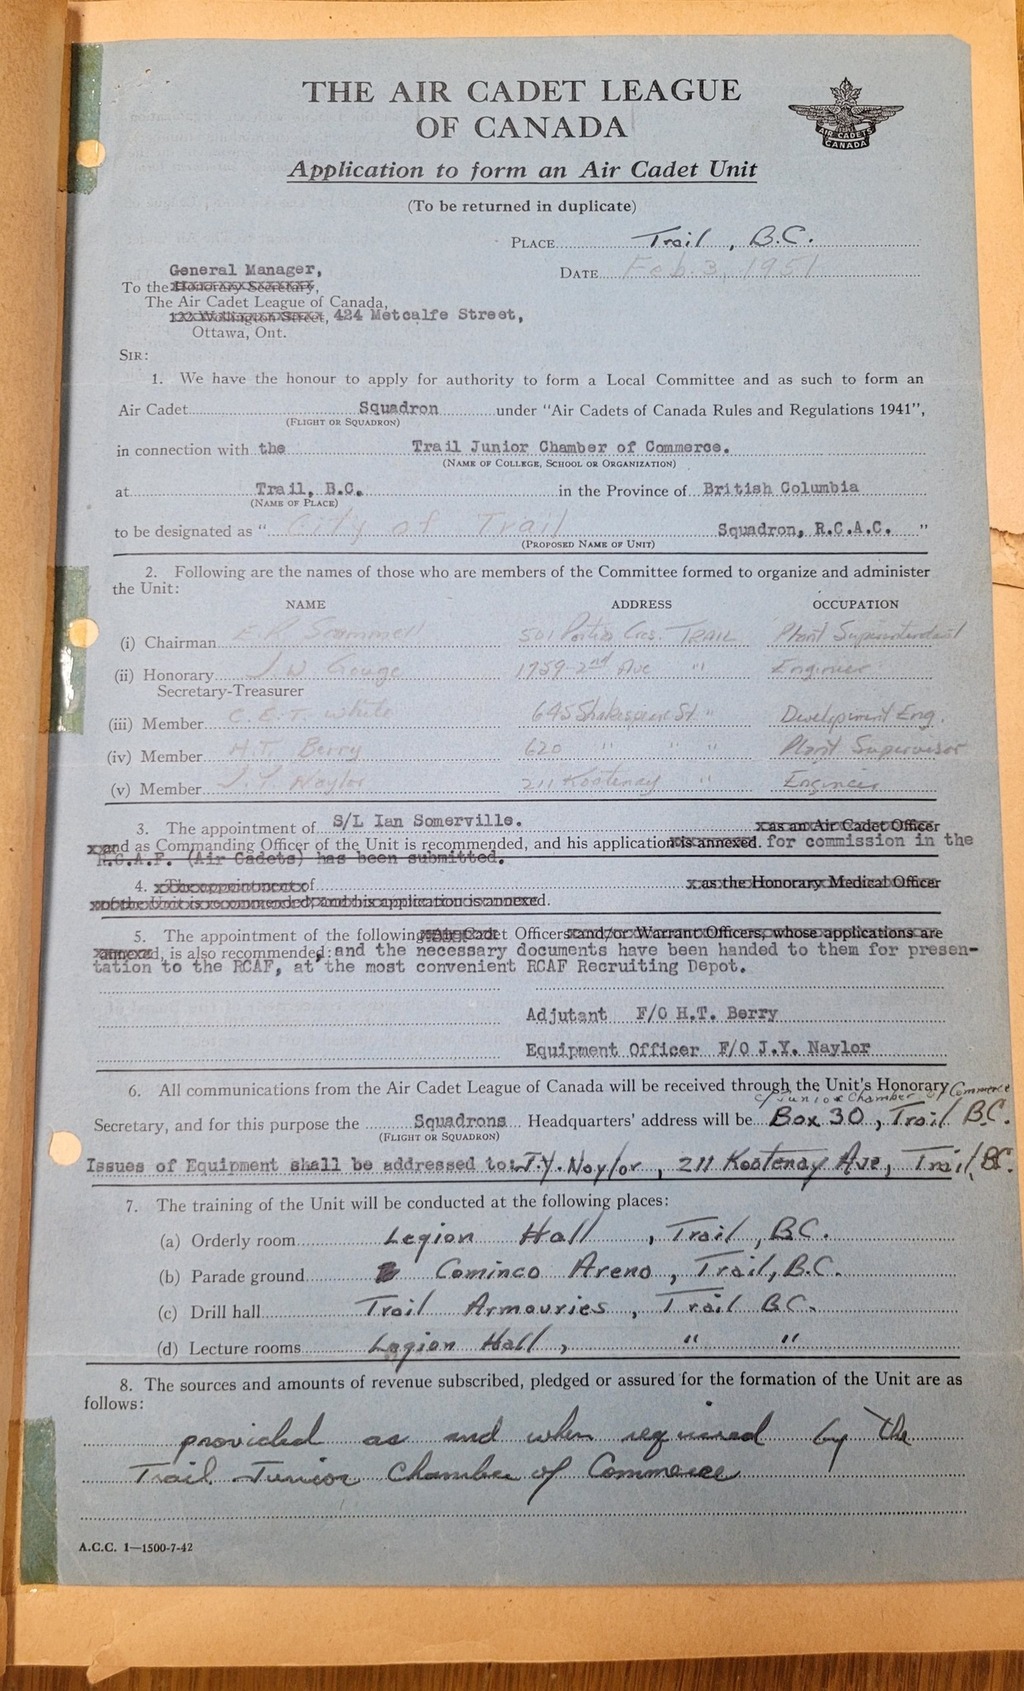 THE AIR CADET LEAGUE
OF CANADA
AIR CADETS
CANADA
Application to form an Air Cadet Unit
(To be returned in duplicate)
PLACE Trail, B.C.
DATE Feb. 3, 1951
General Manager,
To the Honorary Secretary,
The Air Cadet League of Canada,
122 Wellington Street, 424 Metcalfe Street,
Ottawa, Ont.
SIR:
1. We have the honour to apply for authority to form a Local Committee and as such to form an
Air Cadet Squadron under "Air Cadets of Canada Rules and Regulations 1941",
(FLIGHT OR SQUADRON)
in connection with the Trail Junior Chamber of Commerce.
(NAME OF COLLEGE, SCHOOL OR ORGANIZATION)
at Trail, B.C. in the Province of British Columbia
(NAME OF PLACE)
to be designated as " City of Trail Squadron, R.C.A.C. "
(PROPOSED NAME OF UNIT)
2. Following are the names of those who are members of the Committee formed to organize and administer
the Unit:
NAME ADDRESS OCCUPATION
(i) Chairman E.R. Scammell 501 Portia Cres. TRAIL Plant Superintendent
(ii) Honorary J.W. Gouge 1959-2nd Ave " Engineer
Secretary-Treasurer
(iii) Member C.E.T. White 645 Shakespeare St. " Development Eng.
(iv) Member H.T. Berry 620 " " " Plant Supervisor
(v) Member J.Y. Naylor 211 Kootenay " Engineer
3. The appointment of S/L Ian Somerville. as an Air Cadet Officer
and as Commanding Officer of the Unit is recommended, and his application is annexed. for commission in the
R.C.A.F. (Air Cadets) has been submitted.
4. The appointment of as the Honorary Medical Officer
of the Unit is recommended, and his application is annexed.
5. The appointment of the following Air Cadet Officers and/or Warrant Officers, whose applications are
annexed, is also recommended: and the necessary documents have been handed to them for presen-
tation to the RCAF, at the most convenient RCAF Recruiting Depot.
Adjutant F/O H.T. Berry
Equipment Officer F/O J.Y. Naylor
6. All communications from the Air Cadet League of Canada will be received through the Unit's Honorary
c/o Junior Chamber of Commerce
Secretary, and for this purpose the Squadrons Headquarters' address will be Box 30, Trail B.C.
(FLIGHT OR SQUADRON)
Issues of Equipment shall be addressed to: J.Y. Naylor, 211 Kootenay Ave, Trail, B.C.
7. The training of the Unit will be conducted at the following places:
(a) Orderly room Legion Hall, Trail, B.C.
(b) Parade ground Cominco Arena, Trail, B.C.
(c) Drill hall Trail Armouries, Trail B.C.
(d) Lecture rooms Legion Hall, " "
8. The sources and amounts of revenue subscribed, pledged or assured for the formation of the Unit are as
follows:
provided as and when required by the
Trail Junior Chamber of Commerce
A.C.C. 1—1500-7-42